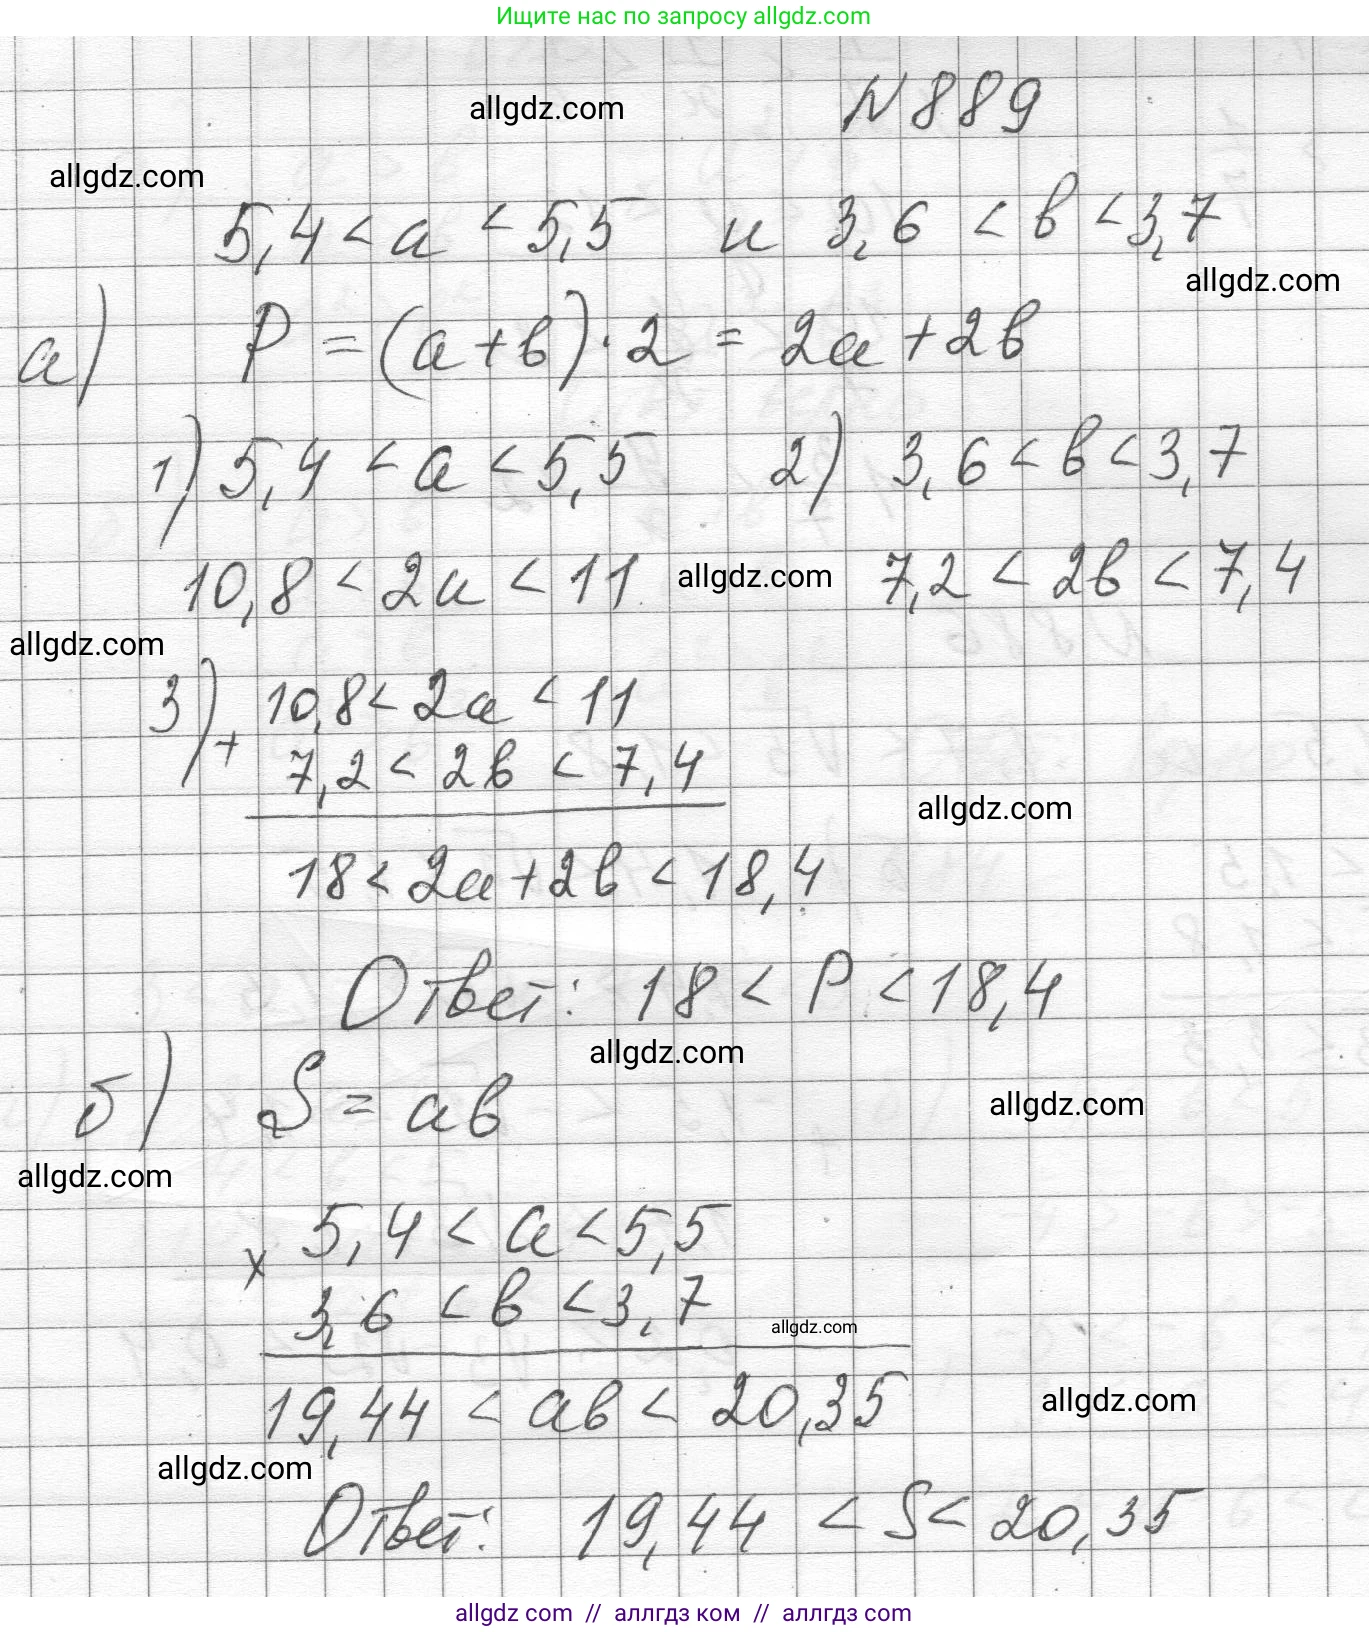 Ищите нас по запросу allgdz.com
allgdz.com
N 889
allgdz.com
5,4 < a < 5,5 и 3,6 < b < 3,7
allgdz.com
а) P = (a+b)·2 = 2a+2b
1) 5,4 < a < 5,5 2) 3,6 < b < 3,7
10,8 < 2a < 11 allgdz.com 7,2 < 2b < 7,4
allgdz.com
3) + 10,8 < 2a < 11
7,2 < 2b < 7,4
allgdz.com
18 < 2a+2b < 18,4
Ответ: 18 < P < 18,4
allgdz.com
б) S = ab
allgdz.com
allgdz.com
x 5,4 < a < 5,5
3,6 < b < 3,7
allgdz.com
19,44 < ab < 20,35
allgdz.com
allgdz.com
Ответ: 19,44 < S < 20,35
allgdz com // аллгдз ком // аллгдз com